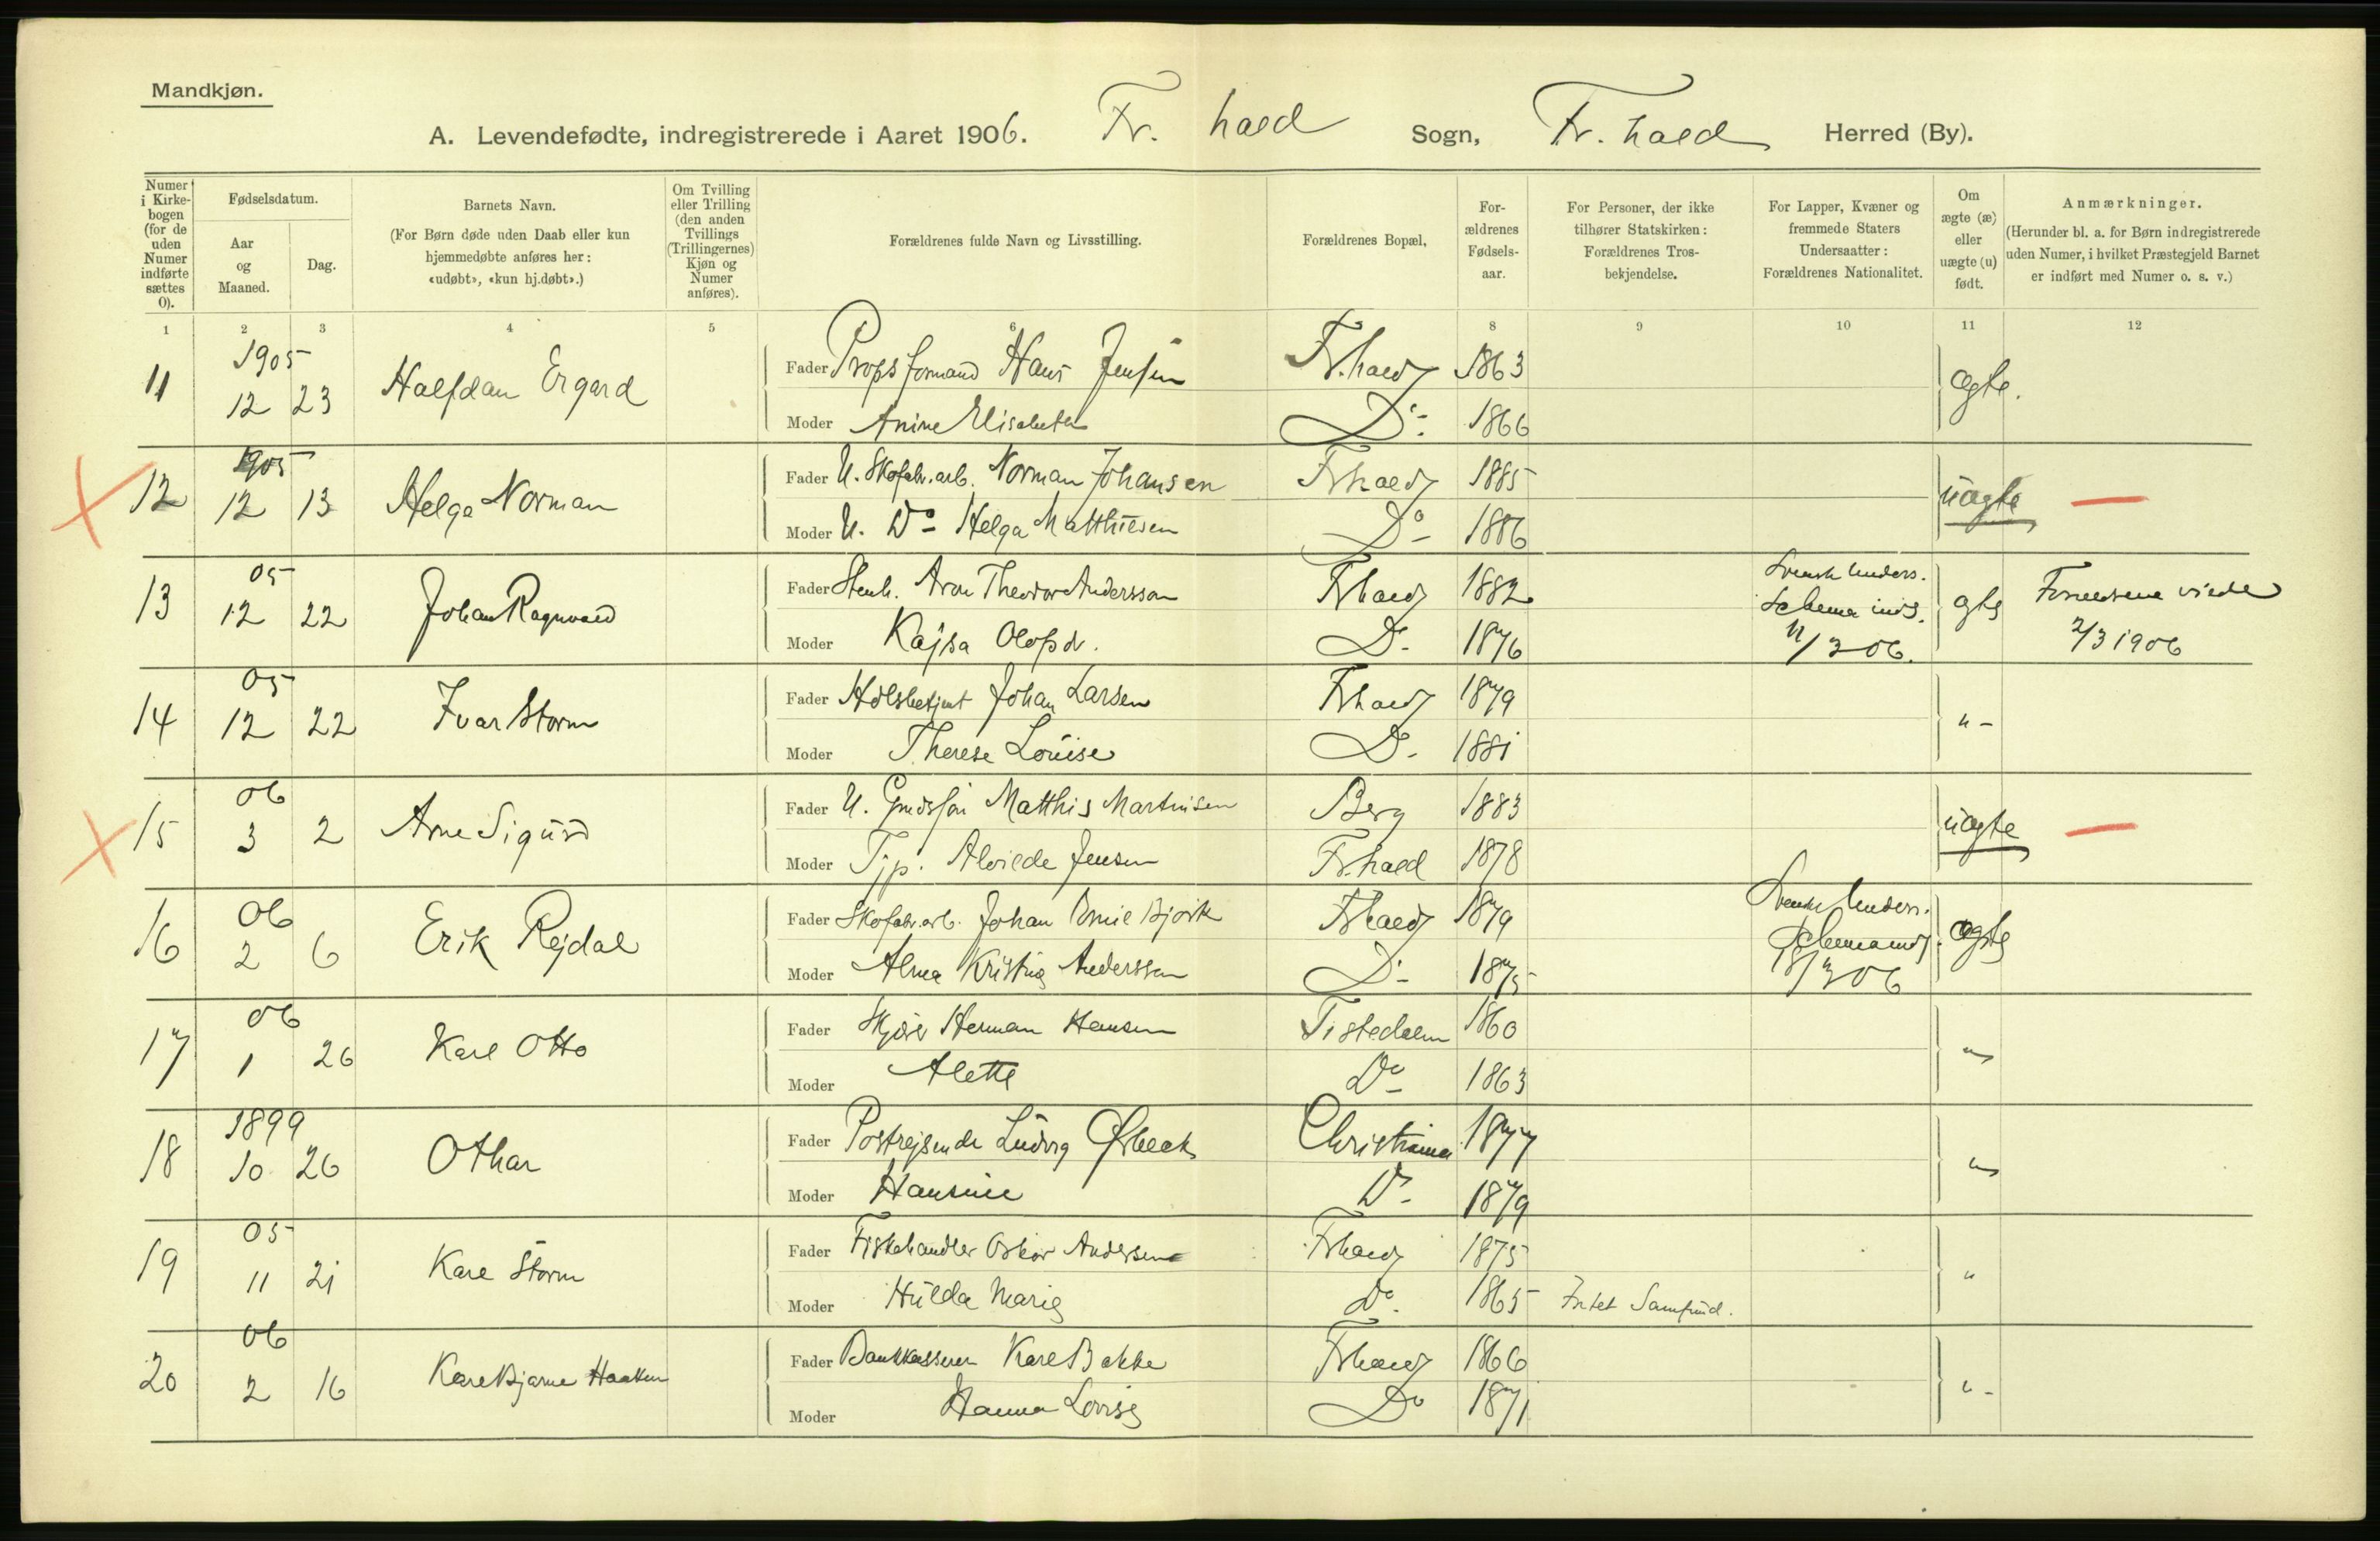 Mandkjøn.
A. Levendefødte, indregistrerede i Aaret 1906. Fr. hald Sogn, Fr. hald Herred (By).
Numer i Kirkebogen (for de uden Numer indførte sættes 0).
Fødselsdatum.
Aar og Maaned.
Dag.
Barnets Navn.
(For Børn døde uden Daab eller kun hjemmedøbte anføres her: «udøbt», «kun hj.døbt».)
Om Tvilling eller Trilling (den anden Tvillings (Trillingernes) Kjøn og Numer anføres).
Forældrenes fulde Navn og Livsstilling.
Forældrenes Bopæl,
Forældrenes Fødselsaar.
For Personer, der ikke tilhører Statskirken: Forældrenes Trosbekjendelse.
For Lapper, Kvæner og fremmede Staters Undersaatter: Forældrenes Nationalitet.
Om ægte (æ) eller uægte (u) født.
Anmærkninger.
(Herunder bl. a. for Børn indregistrerede uden Numer, i hvilket Præstegjeld Barnet er indført med Numer o. s. v.)
1 2 3 4 5 6 8 9 10 11 12
11 1905 12 23 Halfdan Ergard
Fader Propsformand Hans Jensen Fr.hald 1863 ægte.
Moder Anine Elisabeth Do- 1866
12 1905 12 13 Helge Norman
Fader U. Skofabr.arb. Norman Johansen Frhald 1885 uægte —
Moder U. Do- Helga Matthiesen Do- 1886
13 05 12 22 Johan Ragnvald
Fader Stenh. Aron Theodor Andersson Frhald 1882 Svensk Unders. Schema inds. 11/3 06. ægte Forældrene viede 2/3 1906
Moder Kajsa Olofsdr. Do- 1876
14 05 12 22 Ivar Storm
Fader Johan Larsen Frhald 1879 " -
Moder Therese Louise Do- 1881
15 06 3 2 Arne Sigurd
Fader U. Matthis Martinsen Berg 1883 uægte —
Moder Tjp. Alvilde Jensen Fr.hald 1878
16 06 2 6 Erik Rejdal
Fader Skofabr.arb. Johan Emil Bjørk Frhald 1879 Svensk Unders. Schema inds. 18/3 06 ægte
Moder Alma Kristina Anderssen Do- 1875
17 06 1 26 Karl Otto
Fader Herman Hansen Tistedalen 1860 "
Moder Alette Do- 1863
18 1899 10 26 Othar
Fader Postrejsende Ludvig Ørbeck Christiania 1877 "
Moder Hansine Do- 1879
19 05 11 21 Kåre Storm
Fader Fiskehandler Oskar Andersen Frhald 1875 "
Moder Hulda Marie Do. 1865 Intet Samfund.
20 06 2 16 Kåre Bjarne Haaken
Fader Bankkasserer Karl Bakke Frhald 1866 " -
Moder Hanna Lovise Do 1871